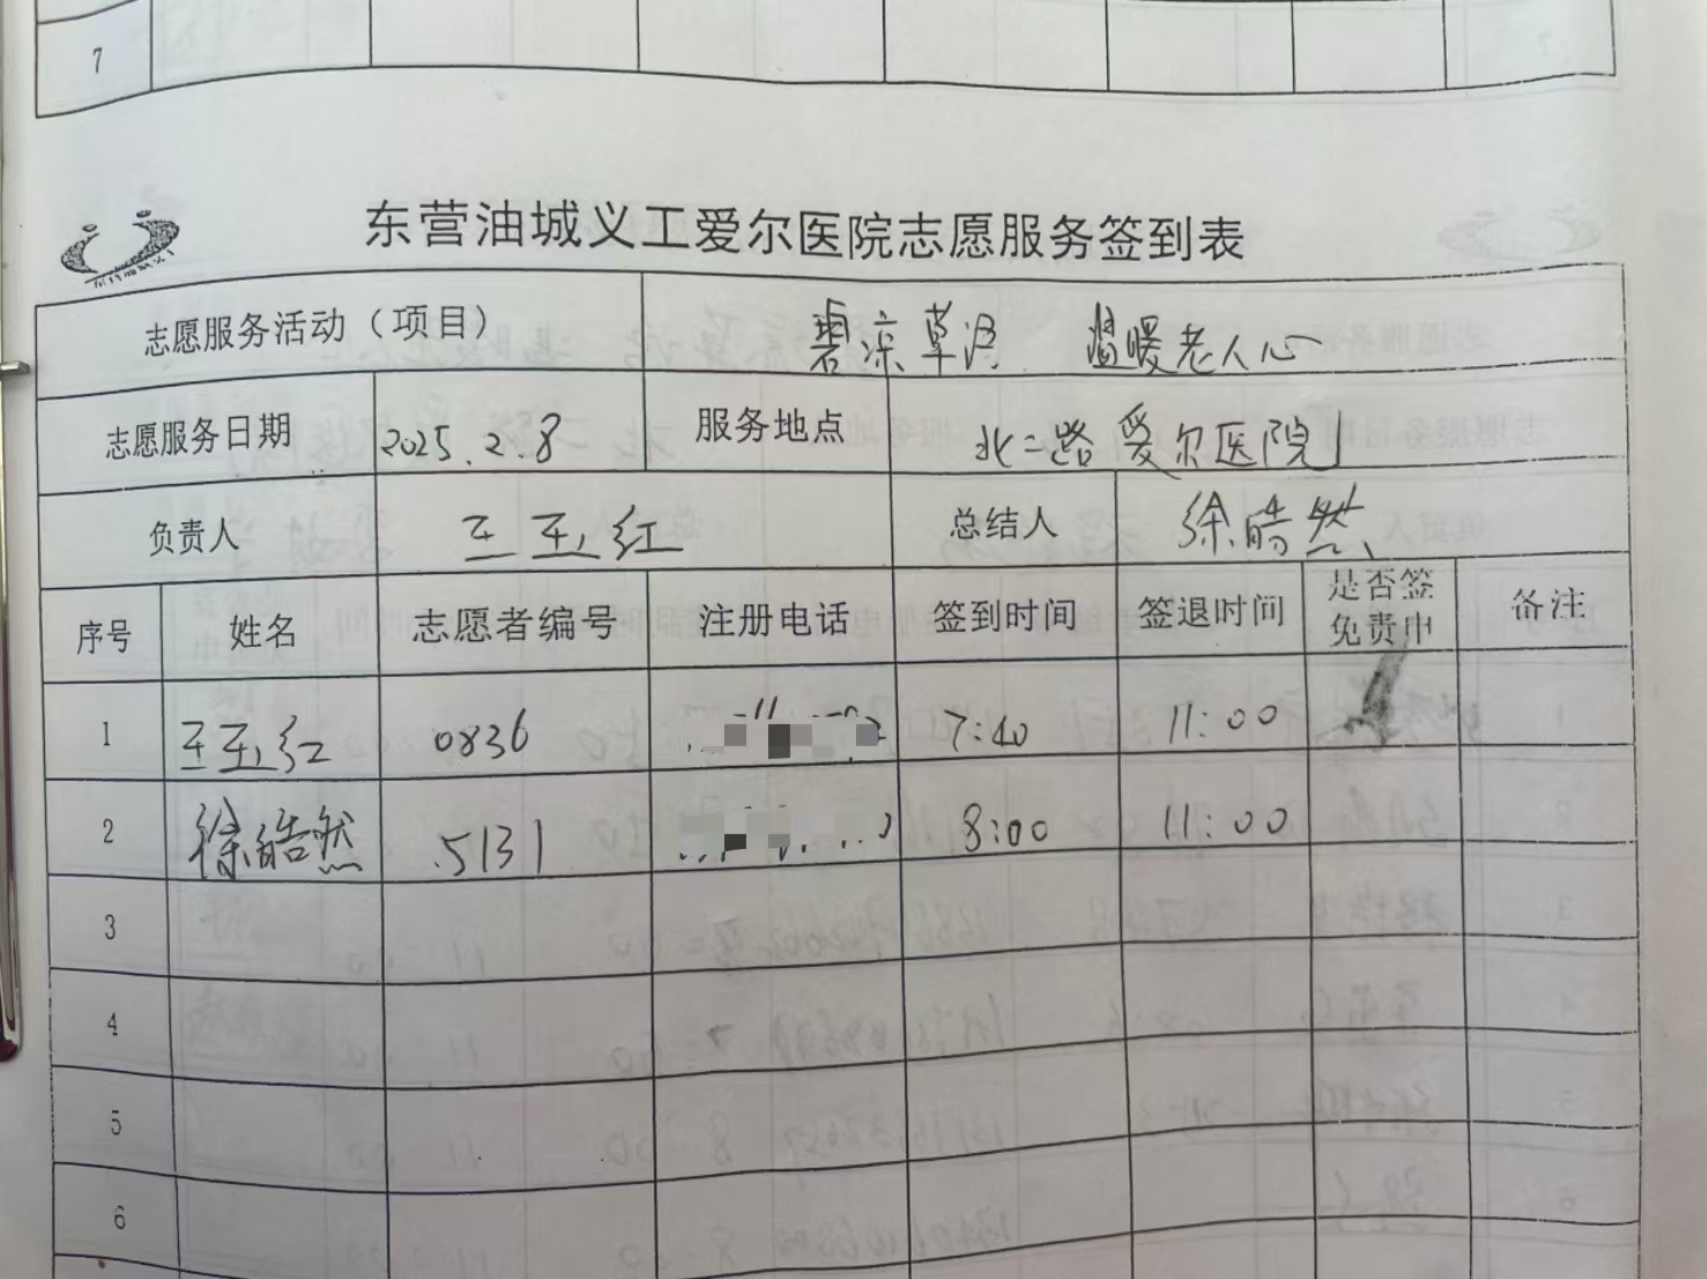 7
东营油城义工爱尔医院志愿服务签到表
志愿服务活动（项目） 温暖老人心
志愿服务日期 2025.2.8 服务地点 北二路爱尔医院
负责人 王玉红 总结人 徐皓然
序号 姓名 志愿者编号 注册电话 签到时间 签退时间 是否签免责申 备注
1 王玉红 0836 7:40 11:00
2 徐皓然 5131 8:00 11:00
3
4
5
6